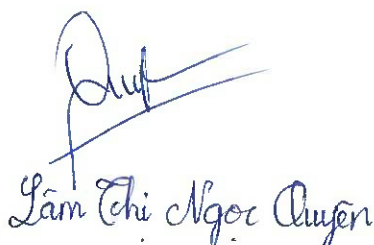 Quy
Lâm Thị Ngọc Quyên